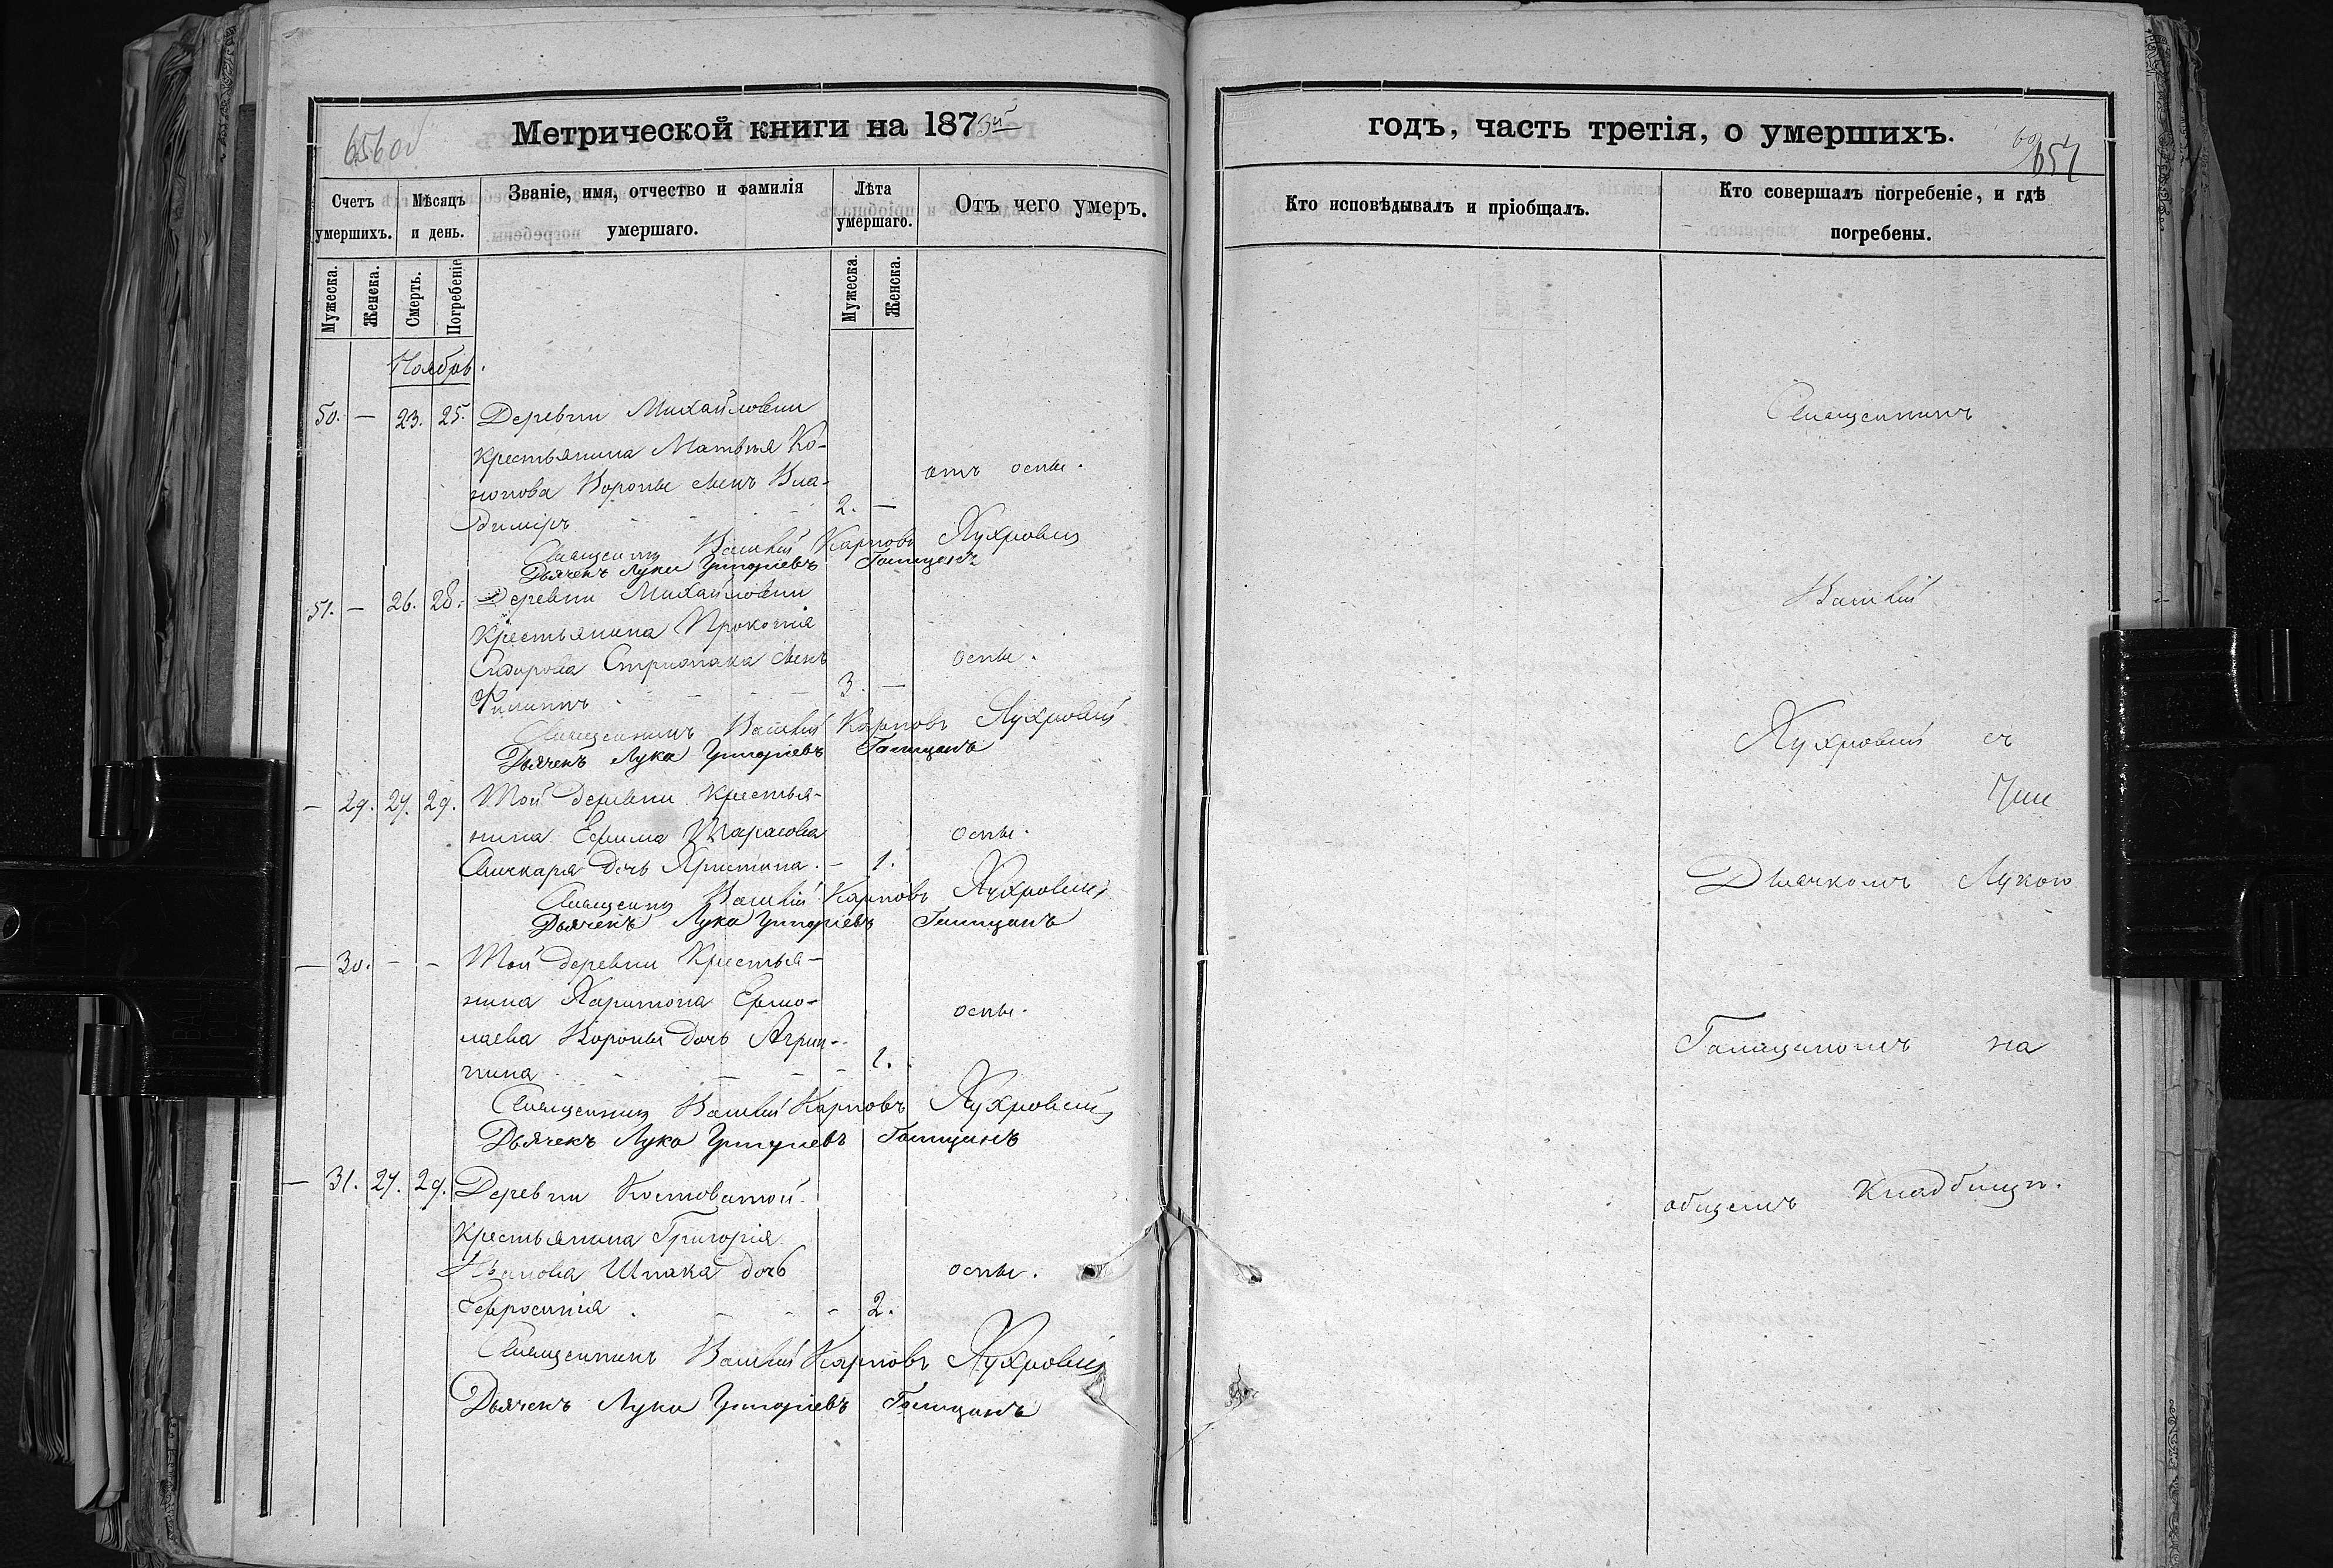 656 об
Метрической книги на 1873й
Счетъ умершихъ.
Мѣсяцъ и день.
Званіе, имя, отчество и фамилія умершаго.
Лѣта умершаго.
Отъ чего умеръ.
Мужеска.
Женска.
Смерть.
Погребеніе
Мужеска.
Женска.
Ноябрь.
50. — 23. 25. Деревни Михайловки
крестьянина Матвѣя Ко-
нонова Вороны сынъ Вла-
отъ оспы.
диміръ - - - 2. —
Священникъ Василій Карповъ
Дьячекъ Лука Григоріевъ Галицанъ
51. — 26. 28. Деревни Михайловки
Крестьянина Прокопія
Сидорова сынъ
оспы.
Филиппъ - - - 3. —
Священникъ Василій Карповъ
Дьячекъ Лука Григоріевъ Галицанъ
— 29. 27. 29. Той деревни крестья-
нина Ефима Тарасова
оспы.
дочь Христина. - 1.
Священникъ Василій Карповъ
Дьячекъ Лука Григоріевъ Галицанъ
— 30. - - Той деревни Крестья-
нина Харитона Ермо-
оспы.
лаева Вороны дочь Агрип-
пина - - - - 1.
Священникъ Василій Карповъ
Дьячекъ Лука Григоріевъ Галицанъ
— 31. 27. 29. Деревни Костоватой
крестьянина Григорія
Иванова Шпака дочь
оспы.
Ефросинія. - - - 2.
Священникъ Василій Карповъ
Дьячекъ Лука Григоріевъ Галицанъ
годъ, часть третія, о умершихъ.
657
Кто исповѣдывалъ и пріобщалъ.
Кто совершалъ погребеніе, и гдѣ погребены.
Священникъ
Василій
съ
Дьячкомъ Лукою
Галицаномъ на
общемъ кладбищѣ.